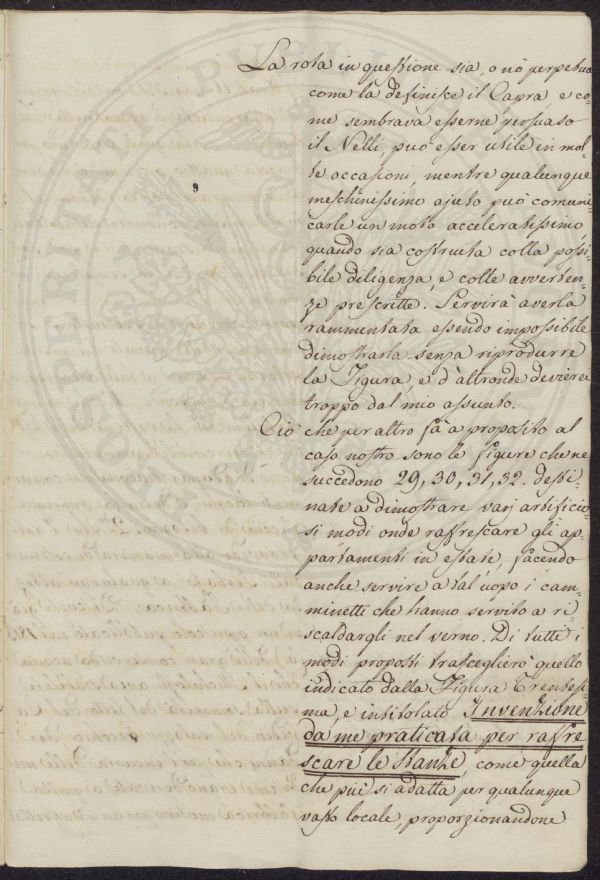 La rota in questione sia, o nò perpetua
come la definisce il Capra, e co=
me sembrava esserne persuaso
il Nelli, può esser utile in mol=
te occasioni, mentre qualunque
meschinissimo ajuto può comuni=
carle un moto acceleratissimo,
quando sia costruita colla possi=
bile diligenza, e colle avverten=
ze prescritte. Servirà averla
rammentata essendo impossibile
dimostrarla senza riprodurre
la Figura, e d'altronde devierei
troppo dal mio assunto.
Ciò che per altro fà a proposito al
caso nostro sono le figure che ne
succedono 29, 30, 31, 32. desti=
nate a dimostrare varj artificio=
si modi onde raffrescare gli ap=
partamenti in estate, facendo
anche servire a tal'uopo i cam=
minetti che hanno servito a ri=
scaldargli nel verno. Di tutti i
modi proposti trasceglierò quello
indicato dalla Figura Trentesi=
ma, e intitolato Invenzione
da me praticata per rafre
scare le Stanze, come quella
che più si adatta per qualunque
vasto locale, proporzionandone